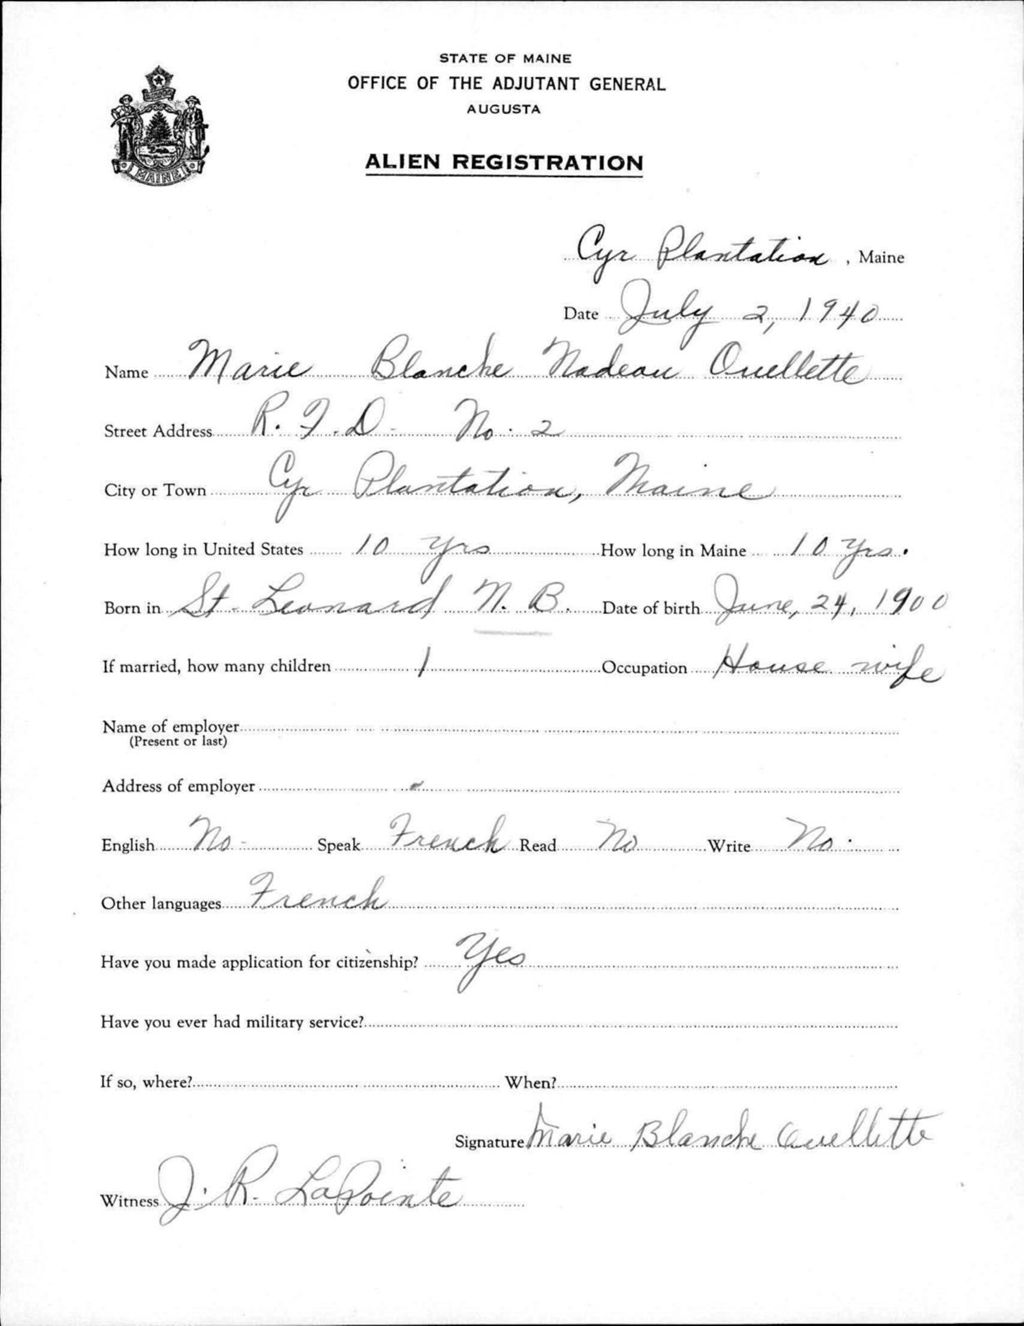 STATE OF MAINE
OFFICE OF THE ADJUTANT GENERAL
AUGUSTA
ALIEN REGISTRATION
MAINE
Cyr Plantation, Maine
Date July 2, 1940
Name Marie Blanche Nadeau Ouellette
Street Address R.F.D. No. 2
City or Town Cyr Plantation, Maine
How long in United States 10 yrs How long in Maine 10 yrs.
Born in St. Leonard N. B. Date of birth June, 24, 1900
If married, how many children 1 Occupation House wife
Name of employer
(Present or last)
Address of employer
English No- Speak French Read No Write No.
Other languages French
Have you made application for citizenship? Yes
Have you ever had military service?
If so, where? When?
Signature Marie Blanche Ouellette
Witness J. R. LaPointe